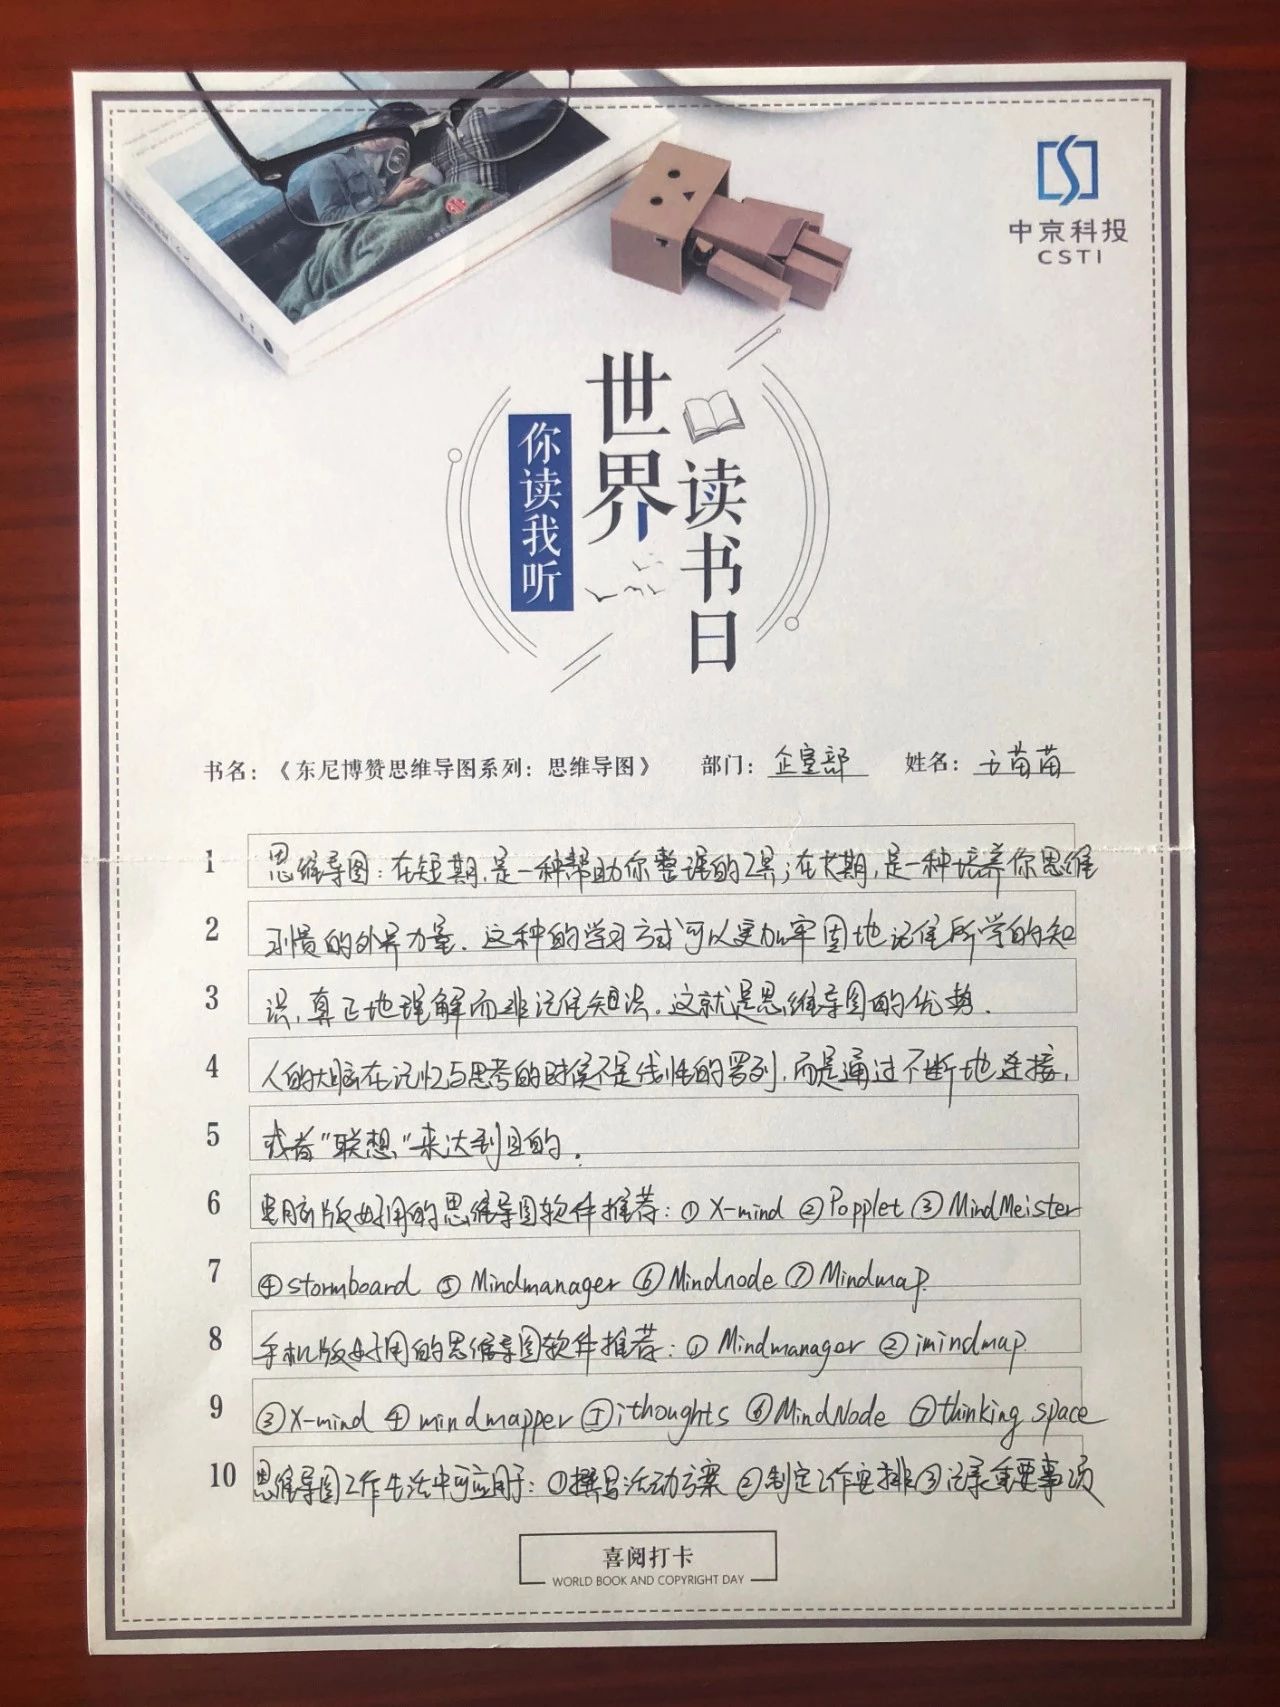 中京科投
CSTI
世界
读书日
你读我听
书名：《东尼博赞思维导图系列：思维导图》 部门：企宣部 姓名：方苗苗
1 思维导图：在短期，是一种帮助你整理的工具；在长期，是一种培养你思维
2 习惯的外界力量．这种的学习方式可以更加牢固地记住所学的知
3 识，真正地理解而非记住知识．这就是思维导图的优势．
4 人的大脑在记忆与思考的时候不是线性的罗列，而是通过不断地连接，
5 或者"联想"来达到目的．
6 电脑版好用的思维导图软件推荐：① X-mind ② Popplet ③ MindMeister
7 ④ stormboard ⑤ Mindmanager ⑥ Mindnode ⑦ Mindmap.
8 手机版好用的思维导图软件推荐：① Mindmanager ② imindmap.
9 ③ X-mind ④ mindmapper ⑤ ithoughts ⑥ MindNode ⑦ thinking space
10 思维导图工作生活中可应用于：①撰写活动方案 ②制定工作安排 ③记录重要事项
喜阅打卡
WORLD BOOK AND COPYRIGHT DAY